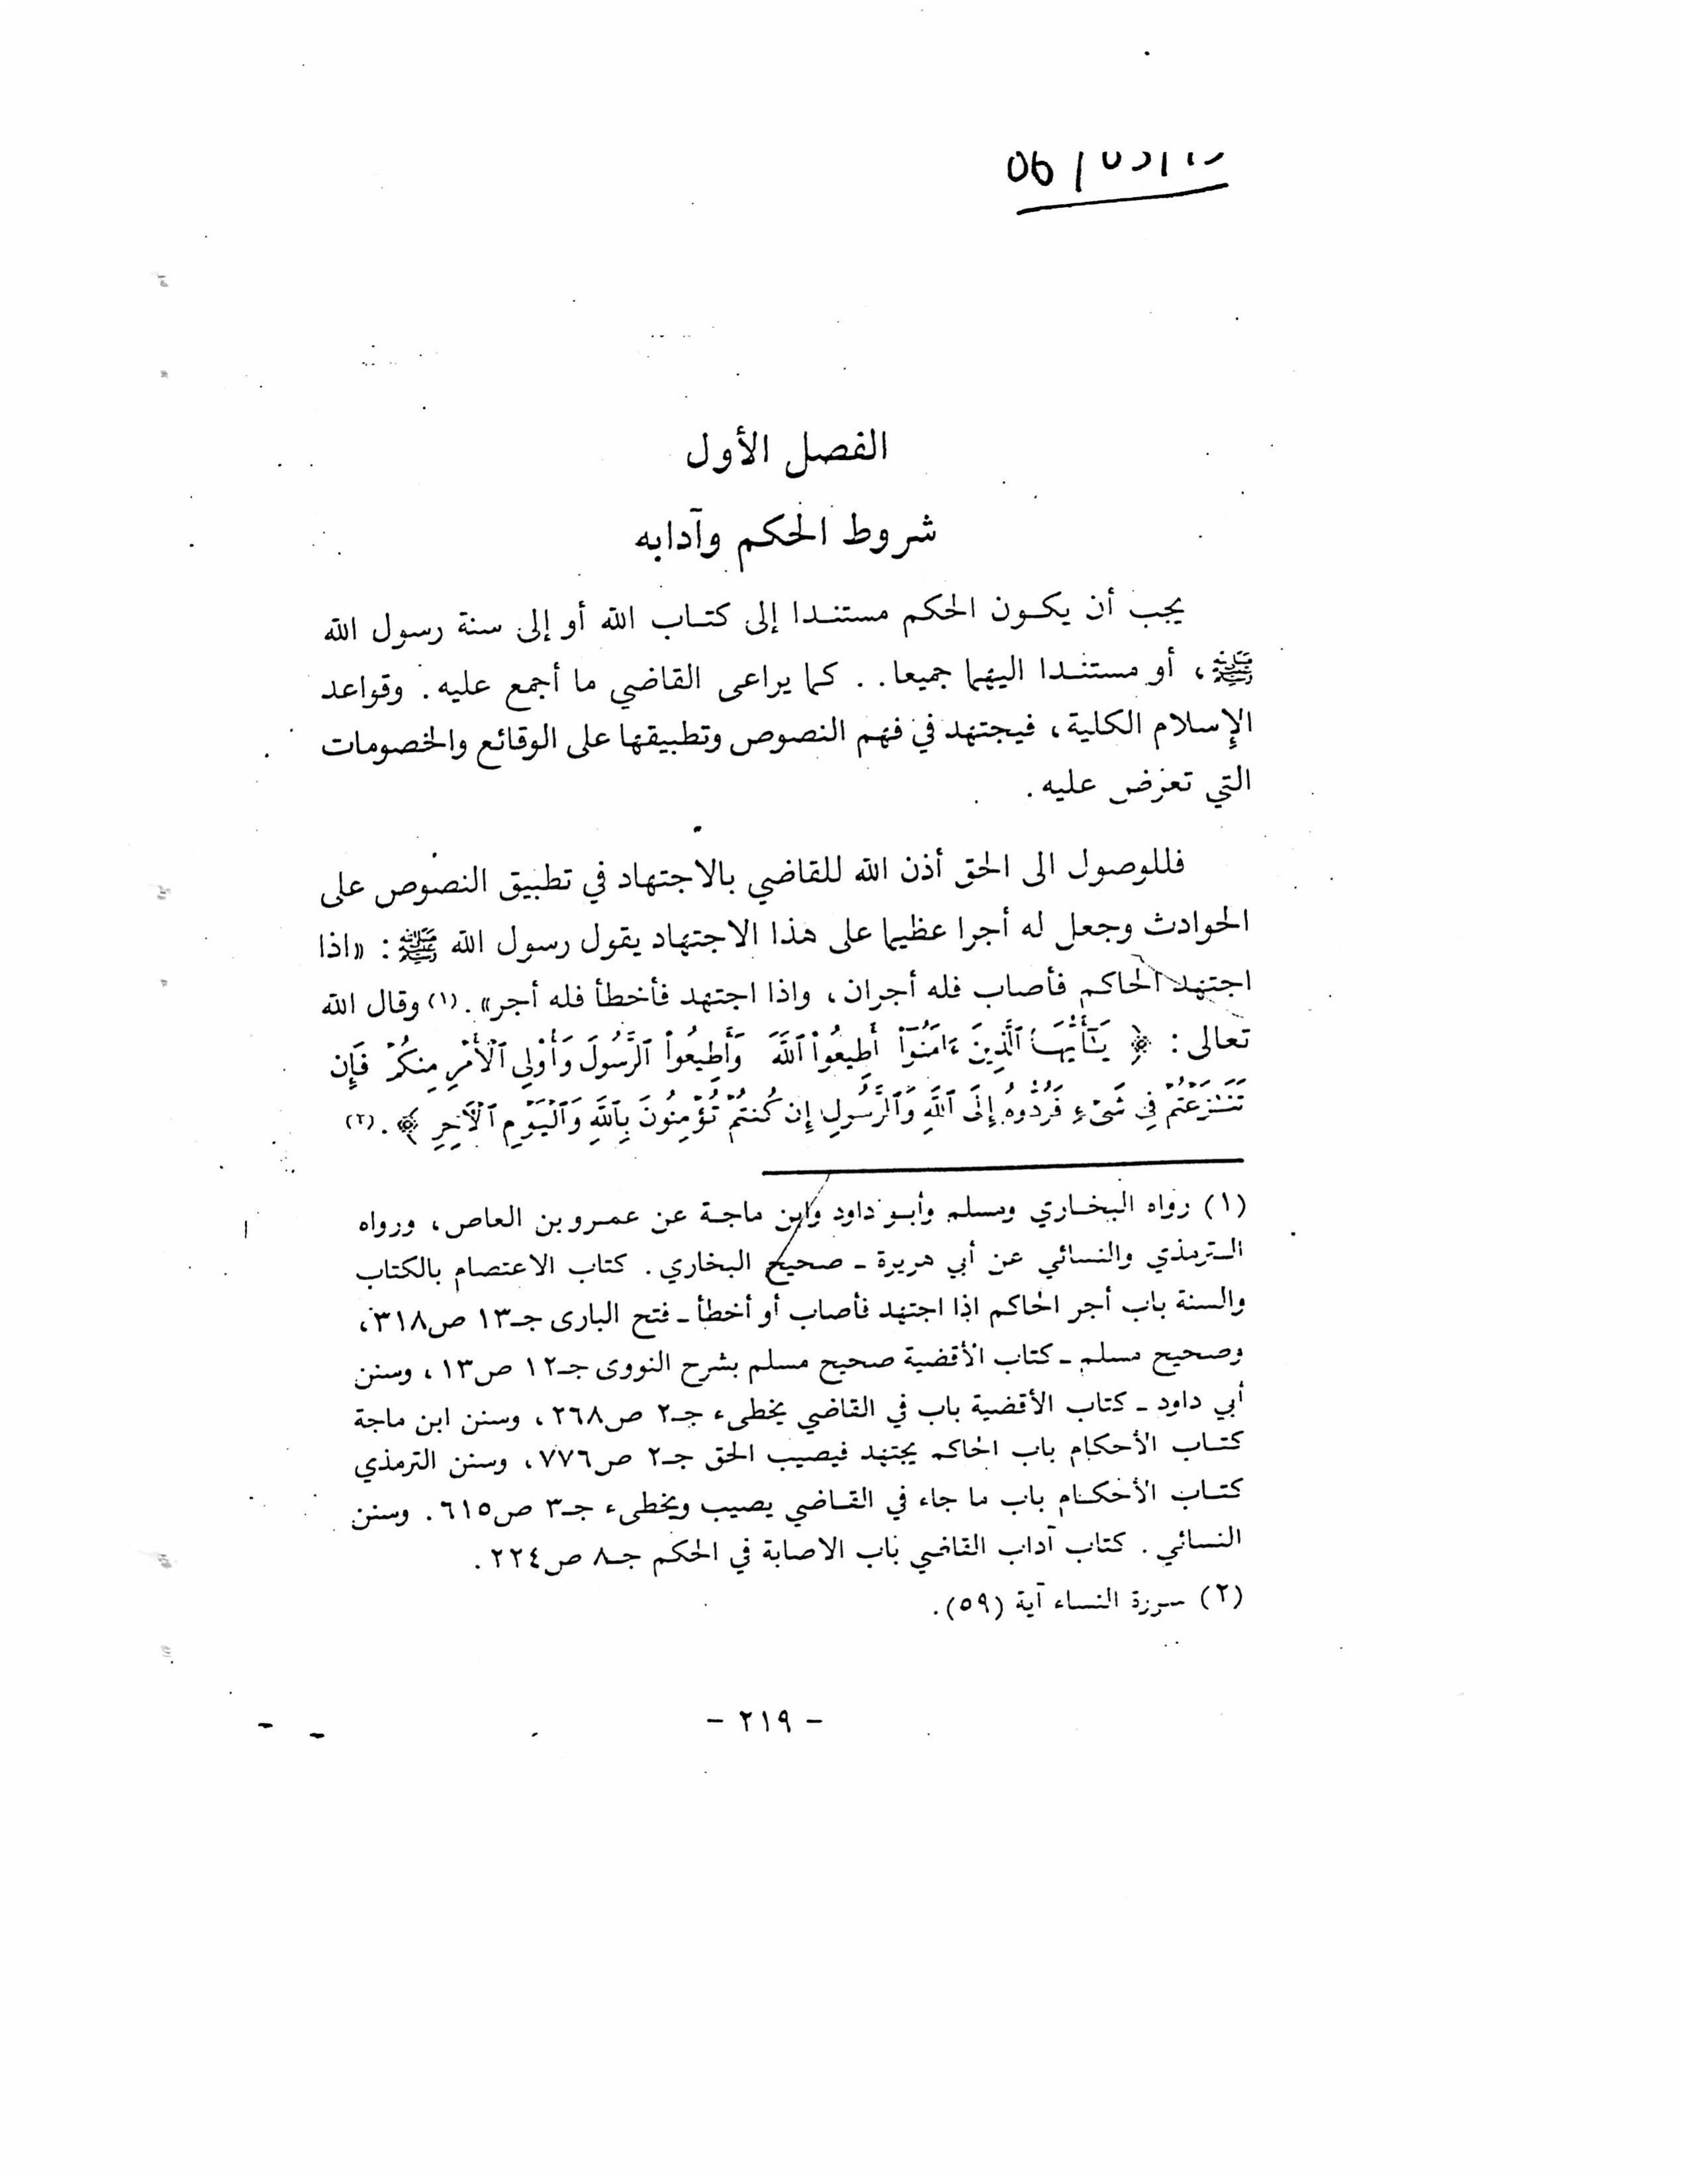 الفصل الأول
شروط الحكم وآدابه
يجب أن يكون الحكم مستندا إلى كتاب الله أو إلى سنة رسول الله
ﷺ، أو مستندا اليهما جميعا.. كما يراعى القاضي ما أجمع عليه. وقواعد
الإسلام الكلية، فيجتهد في فهم النصوص وتطبيقها على الوقائع والخصومات
التي تعرض عليه.
فللوصول الى الحق أذن الله للقاضي بالاجتهاد في تطبيق النصوص على
الحوادث وجعل له أجرا عظيما على هذا الاجتهاد يقول رسول الله ﷺ: «اذا
اجتهد الحاكم فأصاب فله أجران، واذا اجتهد فأخطأ فله أجر». (١) وقال الله
تعالى: ﴿ يَـٰٓأَيُّهَا ٱلَّذِينَ ءَامَنُوٓا۟ أَطِيعُوا۟ ٱللَّهَ وَأَطِيعُوا۟ ٱلرَّسُولَ وَأُو۟لِى ٱلْأَمْرِ مِنكُمْ فَإِن
تَنَـٰزَعْتُمْ فِى شَىْءٍ فَرُدُّوهُ إِلَى ٱللَّهِ وَٱلرَّسُولِ إِن كُنتُمْ تُؤْمِنُونَ بِٱللَّهِ وَٱلْيَوْمِ ٱلْـَٔاخِرِ ﴾. (٢)
(١) رواه البخاري ومسلم وأبو داود وابن ماجة عن عمرو بن العاص، ورواه
الترمذي والنسائي عن أبي هريرة ـ صحيح البخاري. كتاب الاعتصام بالكتاب
والسنة باب أجر الحاكم اذا اجتهد فأصاب أو أخطأ ـ فتح البارى جـ١٣ ص٣١٨،
وصحيح مسلم ـ كتاب الأقضية صحيح مسلم بشرح النووى جـ١٢ ص١٣، وسنن
أبي داود ـ كتاب الأقضية باب في القاضي يخطىء جـ٢ ص٢٦٨، وسنن ابن ماجة
كتاب الأحكام باب الحاكم يجتهد فيصيب الحق جـ٢ ص٧٧٦، وسنن الترمذي
كتاب الأحكام باب ما جاء في القاضي يصيب ويخطىء جـ٣ ص٦١٥. وسنن
النسائي. كتاب آداب القاضي باب الاصابة في الحكم جـ٨ ص٢٢٤.
(٢) سورة النساء آية (٥٩).
- ٢١٩ -